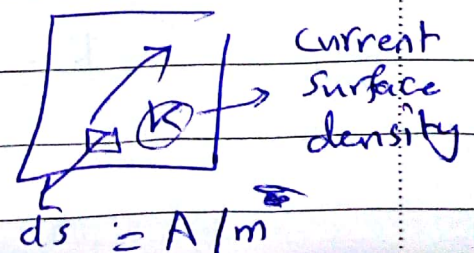 Current
surface
K
density
ds = A/m